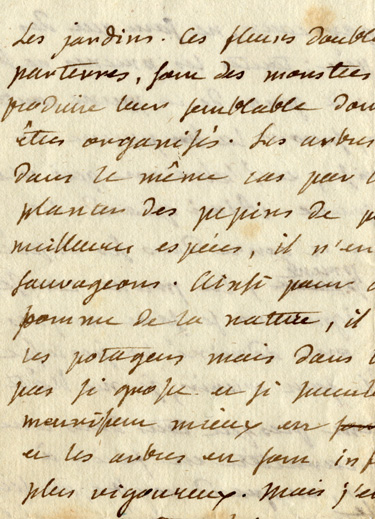 les jardins. Ces fleurs double
parterres, sont des monstres
produire leur semblable don
êtres organisés. Les arbres
dans le même cas par
planter des pepins de p
meilleures espéces, il n'en
sauvageons. Ainsi pour
pomme de la nature, il
les potagers mais dans
pas si grosse et si succule
meurissent mieux en
et les arbres en sont inf
plus vigoureux. Mais j'en